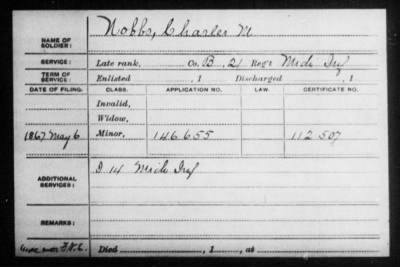 NAME OF SOLDIER: Nobbs, Charles M
SERVICE: Late rank, Co. B, 21 Reg't Mich Inf
TERM OF SERVICE: Enlisted , 1 Discharged , 1
DATE OF FILING. CLASS. APPLICATION NO. LAW. CERTIFICATE NO.
Invalid,
Widow,
1867 May 6 Minor, 146655 112507
ADDITIONAL SERVICES: I 14 Mich Inf
REMARKS:
Died , 1 , at